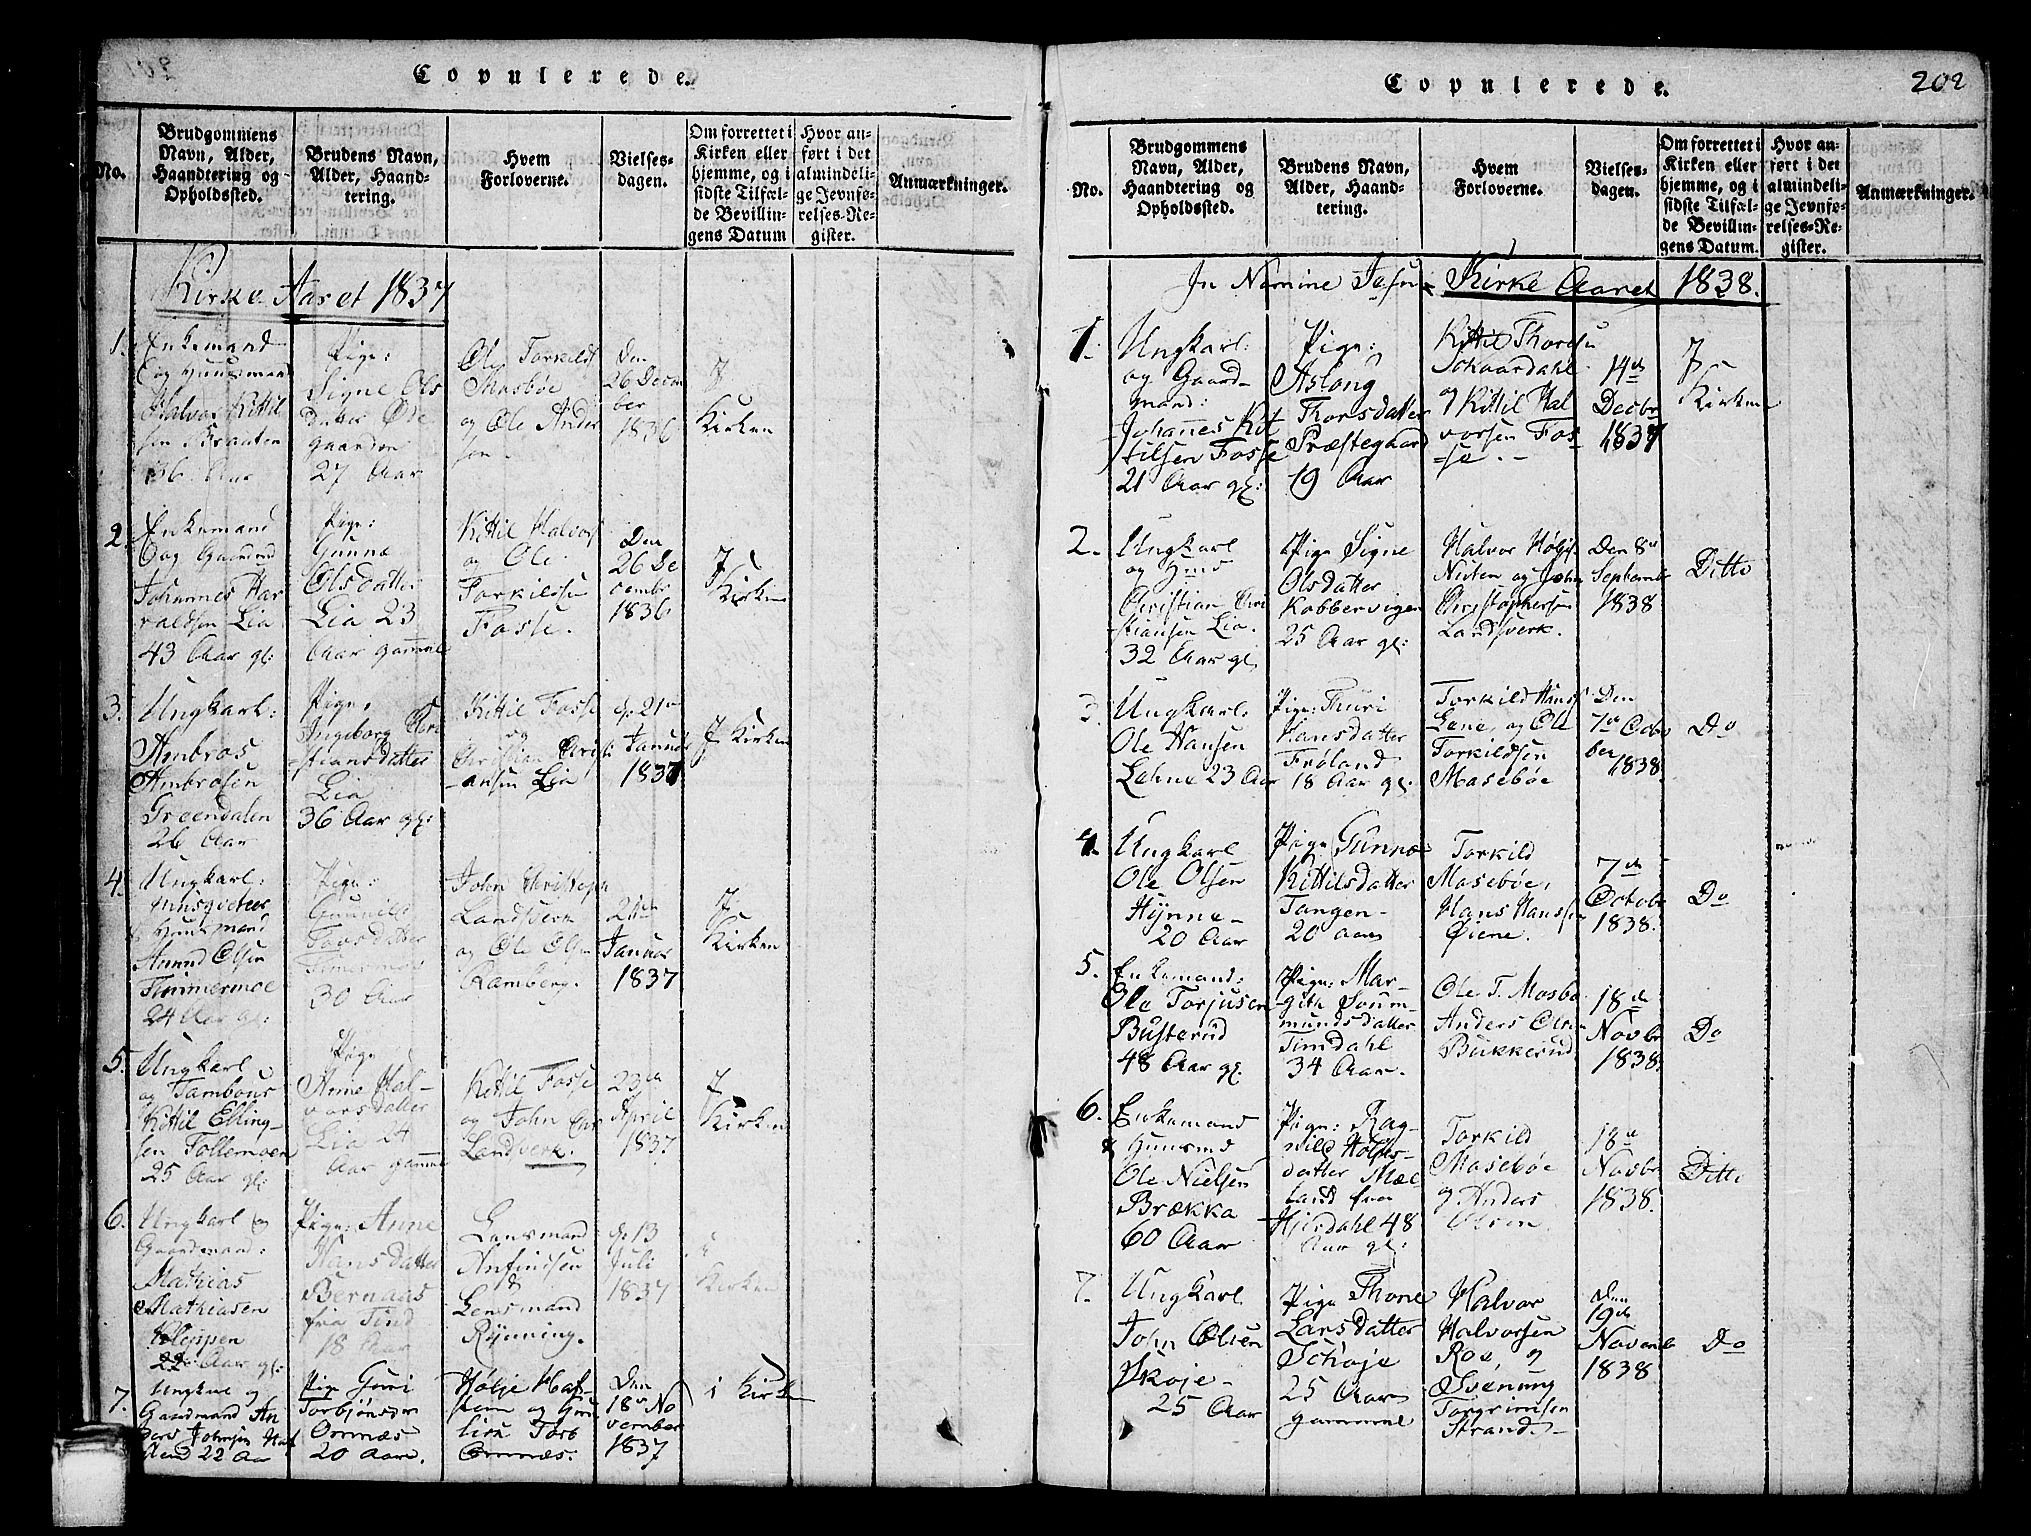 Copulerede.
No.
Brudgommens
Navn, Alder,
Haandtering og
Opholdssted.
Brudens Navn,
Alder, Haand-
tering.
Hvem
Forloverne.
Vielses-
dagen.
Om forrettet i
Kirken eller
hjemme, og i
sidste Tilfæl-
de Bevillin-
gens Datum
Hvor an-
ført i det
almindeli-
ge Jevnfø-
relses-Re-
gister.
Anmærkninger.
Kirke Aaret 1837
1.
Enkemand
og Huusmand
Halvor Kittil
sen Braaten
36 Aar
Pige:
Signe Ols
datter Øde
gaarden
27 Aar
Ole Torkilds
Masbøe
og Ole Ander
sen
Den
26 Decem
ber
1836
I
Kirken
2.
Enkemand
og Gaardmd
Johannes Har
valdsen Lia
43 Aar gl:
Pige:
Gunne
Olsdatter
Lia 23
Aar gamme
Kittil Halvors
og Ole
Torkildsen
Fosse.
Den
26 De
cembr
1836
I
Kirken
3.
Ungkarl:
Ambros
Ambrosen
Greendalen
26 Aar
Pige,
Ingeborg Chri
stiansdatter
Lia
36 Aar gl:
Kittil Fosse
og
Christian Christi
ansen Lia
d. 21de
Januar
1837
I Kirken
4.
Ungkarl:
& Huusmand
Amund Olsen
Timmermoe
24 Aar gl:
Pige:
Gunnild
Torsdatter
Timermoe
30 Aar
John Christoph
Landsverk
og Ole Olsen
Ramberg.
21de
Januar
1837
I
Kirken
5.
Ungkarl
og Tambour
Kittil Elling-
sen Follemoen
25 Aar gl:
Pige
Anne Hal-
vorsdatter
Lia 24
Aar gamme
Kittil Fosse
og John Chr
Landsverk.
23de
April
1837
I
Kirken
6.
Ungkarl og
Gaardmand:
Mathias
Mathiasen
Kleppen
22 Aar gl:
Pige: Anne
Hansdatter
Bernaas
fra Tind
18 Aar
Lensmand
Anfindsen
&
Lensmand
Rynning.
d. 13
Juli
1837
i
Kirken
7.
Ungkarl og
Gaardmand An
ders Johnsen Haf
20 Aar.
Pige Guri
Torbjønsdr
Ormæs
Hølje Haf-
Ormæs.
Den
18de No
vember
1837
i Kirken
Copulerede.
202
No.
Brudgommens
Navn, Alder,
Haandtering og
Opholdssted.
Brudens Navn,
Alder, Haand-
tering.
Hvem
Forloverne.
Vielses-
dagen.
Om forrettet i
Kirken eller
hjemme, og i
sidste Tilfæl-
de Bevillin-
gens Datum.
Hvor an-
ført i det
almindeli-
ge Jevnfø-
relses-Re-
gister.
Anmærkninger.
In Nomine Jesu. Kirke Aaret 1838.
1.
Ungkarl:
og Gaard-
mand:
Johannes Kit
tilsen Fosse
21 Aar gl:
Pige:
Aslong
Thorsdatter
Præstegaard
19 Aar
Kittil Thorsen
Schaardahl
og Kittil Hal
vorsen Fos-
se.
14de
Decbr
1837
I
Kirken
2.
Ungkarl
og Hmd
Christian Chri
stiansen Lia.
32 Aar gl.
Pige Signe
Olsdatter
Kobbervigen
25 Aar gl:
Halvor Høljs.
Nisten og John
Christophersen
Landsverk.
Den 8de
Septembr
1838
Ditto
3.
Ungkarl:
Ole Hansen
Lehne 23 Aar
Pige: Thuri
Hansdatter
Frøland
18 Aar gl:
Torkild Hans
Lene, og Ole
Torkildsen
Masebøe
Den
7de Octo
ber
1838.
Do
4.
Ungkarl
Ole Olsen
Hynne-
20 Aar
Pige Gunne
Kittilsdatter
Tangen-
20 Aar
Torkild
Masebøe,
Hans Hansen
Øiene.
7de
Octobr
1838.
Do
5.
Enkemand:
Ole Torjusen
Busterud
48 Aar gl.
Pige: Mar-
gith Som-
mundsdatter
Timdahl
34 Aar.
Ole T. Mosbø
Anders Olsen
Bukkerud
18de
Novbr
1838.
Do
6.
Enkemand
& Huusmd
Ole Nielsen
Brækka
60 Aar
Pige: Rag-
nild Høljes-
datter Mæ-
land fra
Hjersdahl 48
Aar gl:
Torkild
Masebøe
og Anders
Olsen
18de
Novbr
1838.
Ditto
7.
Ungkarl
John Olsen
Skoje-
25 Aar
Pige Thone
Larsdatter
Schøje
25 Aar
gamme
Halvor
Halvorsen
Roe, og
Svenung
Torgrimsen
Strand.
Den
19de
Novemb
1838
Do